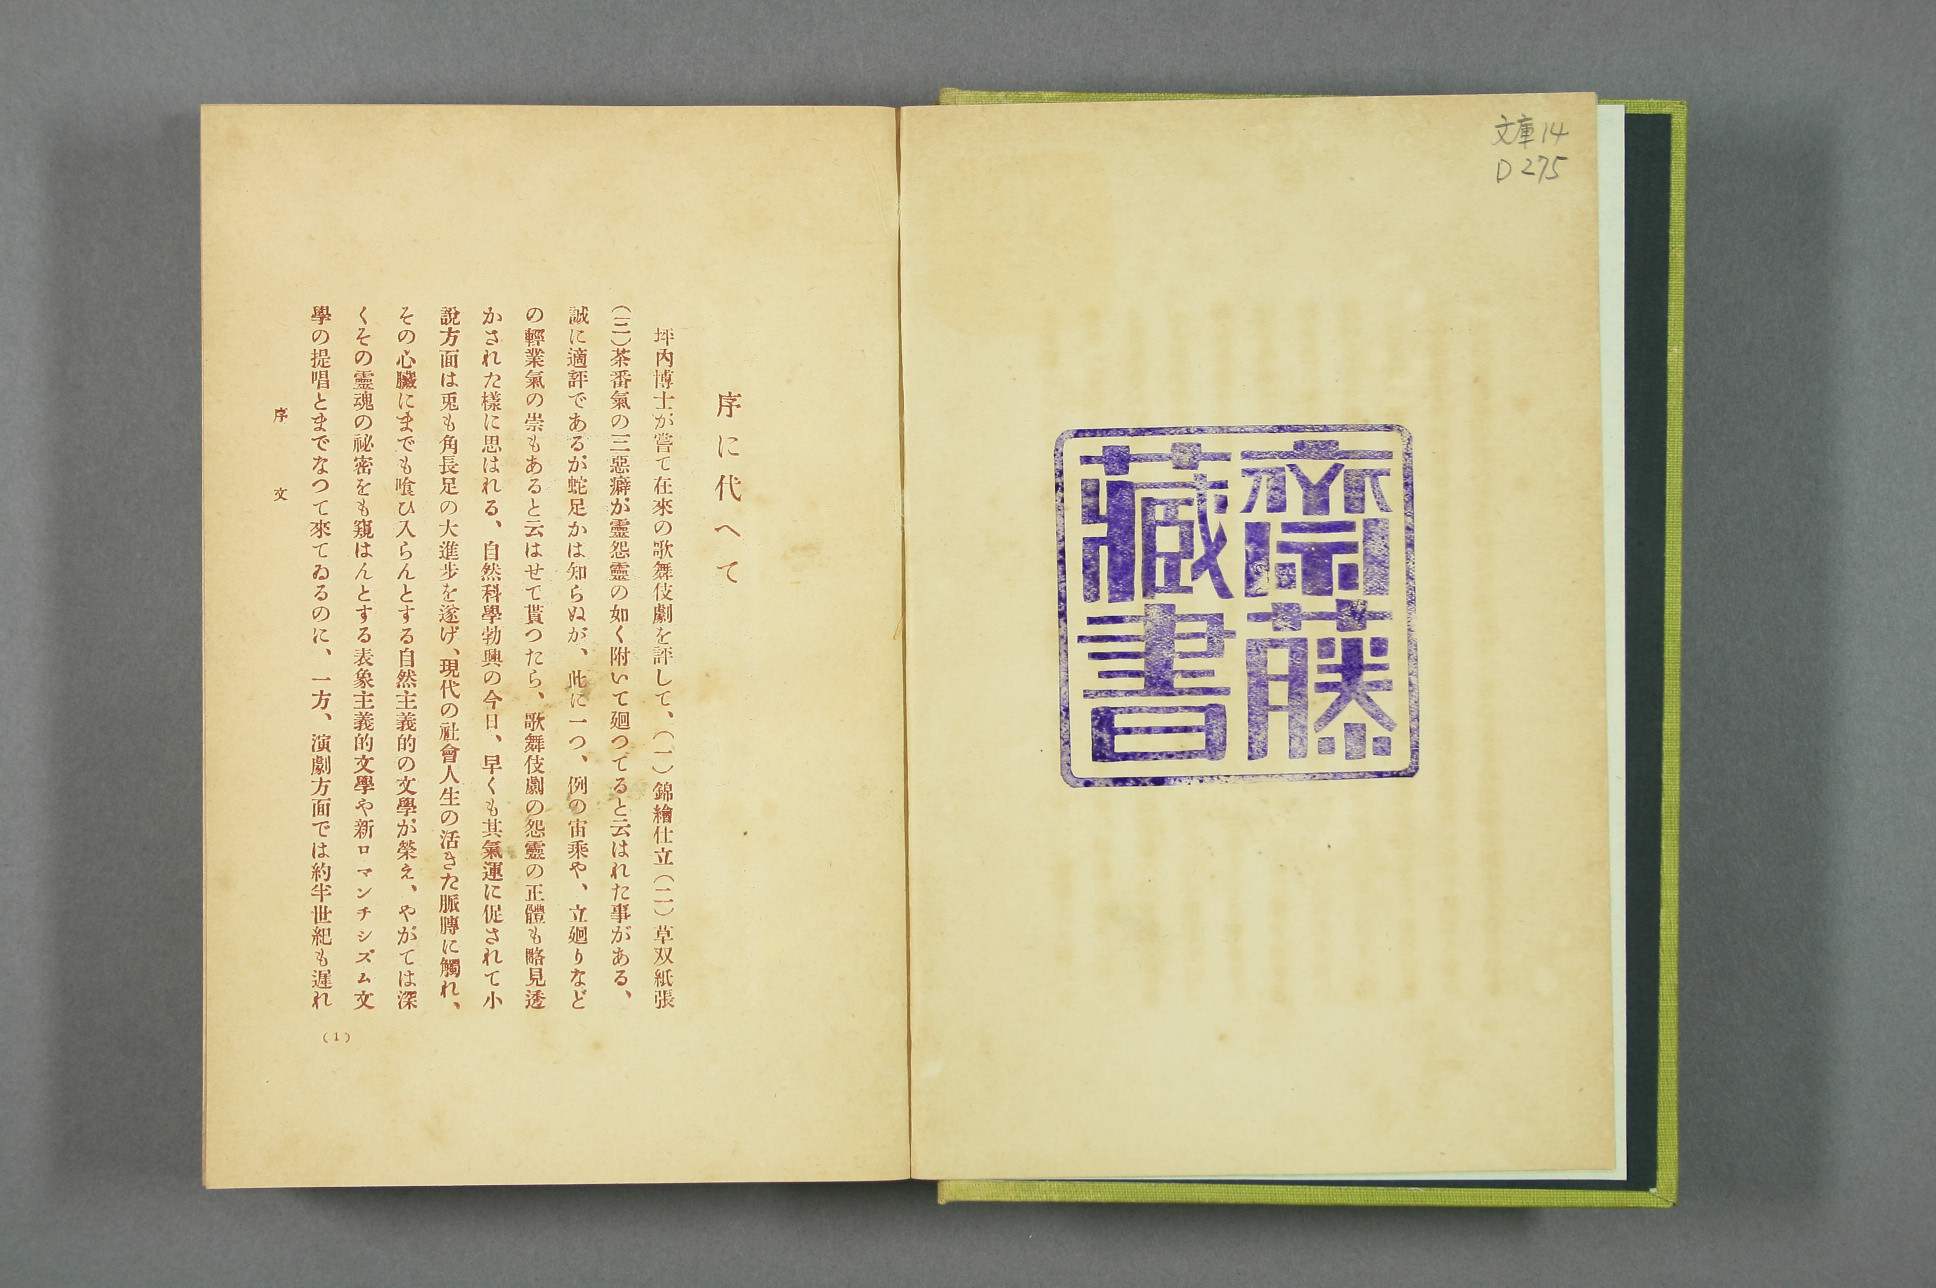 文庫14
D275
齋藤
藏書
序に代へて
坪内博士が嘗て在來の歌舞伎劇を評して、（一）錦繪仕立（二）草双紙張
（三）茶番氣の三惡癖が靈怨靈の如く附いて廻つてると云はれた事がある、
誠に適評であるが蛇足かは知らぬが、此に一つ、例の宙乘や、立廻りなど
の輕業氣の祟もあると云はせて貰つたら、歌舞伎劇の怨靈の正體も略見透
かされた樣に思はれる、自然科學勃興の今日、早くも其氣運に促されて小
說方面は兎も角長足の大進步を遂げ、現代の社會人生の活きた脈膊に觸れ、
その心臟にまでも喰ひ入らんとする自然主義的の文學が榮え、やがては深
くその靈魂の祕密をも窺はんとする表象主義的文學や新ロマンチシズム文
學の提唱とまでなつて來てゐるのに、一方、演劇方面では約半世紀も遲れ
序文
（1）